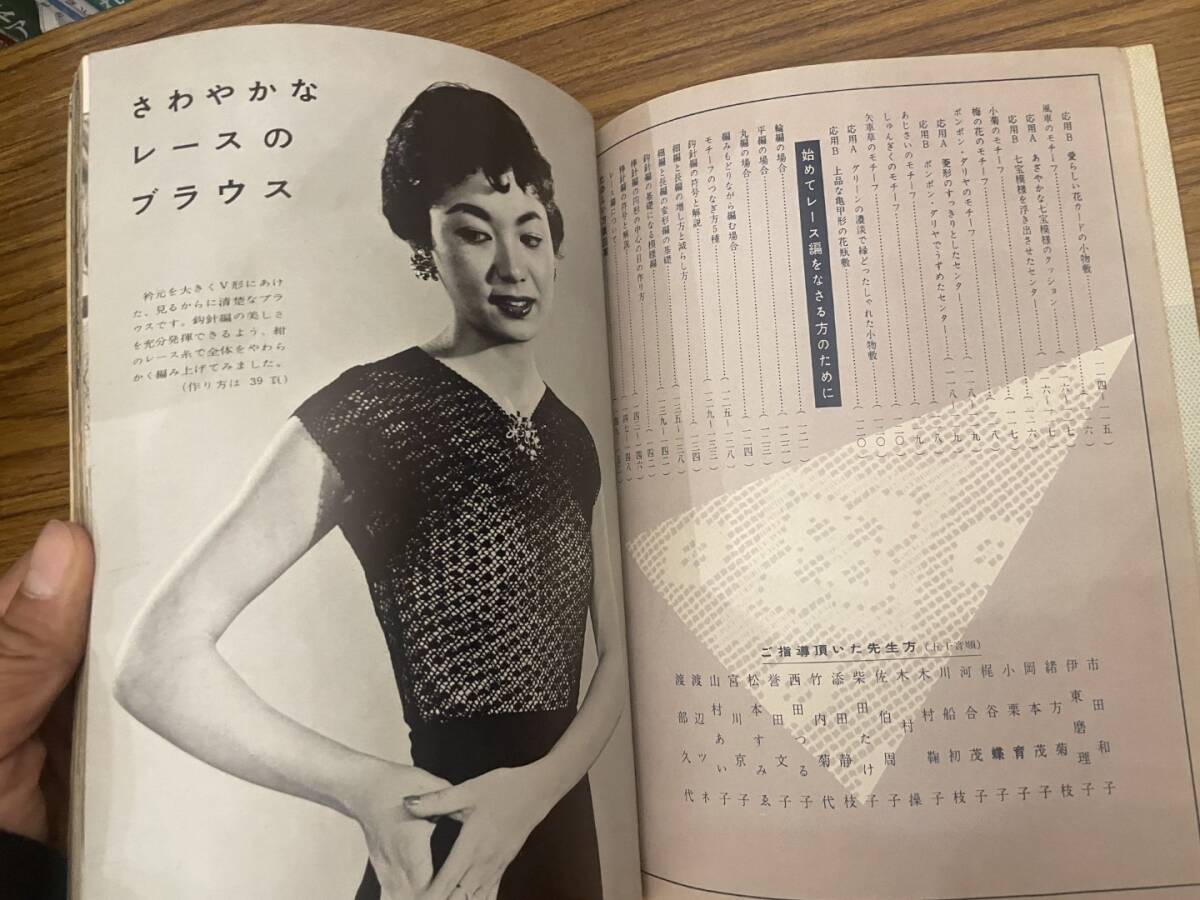 さわやかな
レースの
ブラウス
衿元を大きくV形にあけ
た、見るからに清楚なブラ
ウスです。鈎針編の美しさ
を充分発揮できるよう、紺
のレース糸で全体をやわら
かく編み上げてみました。
(作り方は 39 頁)
応用B 愛らしい花ガードの小物敷……(一二四~一二五)
風車のモチーフ……(一一六)
応用A あざやかな七宝模様のクッション……(一一六~一一七)
応用B 七宝模様を浮き出させたセンター……(一一七)
小菊のモチーフ……(一一八)
梅の花のモチーフ……(一一八~一一九)
ポンポン・ダリヤのモチーフ
応用A 菱形のすっきりとしたセンター
応用B ポンポン・ダリヤでうずめたセンター
あじさいのモチーフ
しゅんぎくのモチーフ……(一二〇)
矢車草のモチーフ……(一二〇)
応用A グリーンの濃淡で縁どったしゃれた小物敷
応用B 上品な亀甲形の花瓶敷……(一二〇)
始めてレース編をなさる方のために
輪編の場合……(一二一)
平編の場合……(一二三)
丸編の場合……(一二四)
編みもどりながら編む場合……(一二五~一二八)
モチーフのつなぎ方5種……(一二九~一三三)
鈎針編の符号と解説……(一三四)
細編と長編の増し方と減らし方……(一三五~一三八)
細編と長編の変形編の基礎……(一三九~一四二)
鈎針編の基礎になる模様編……(一四二)
棒針編の円形の中心の目の作り方……(一四三~一四六)
棒針編の符号と解説……(一四七~一四八)
レース編について
ご指導頂いた先生方(五十音順)
市田和子
伊東磨理枝
緒方菊子
岡本茂子
小栗育子
梶谷蝶子
河合茂子
川船初枝
木村鞠子
木村操
佐伯周子
柴田たけ子
添田静枝
竹内菊代
西田つる子
誉田文子
松本すみゑ
宮川京子
山村あい子
渡辺ツネ
渡部久代